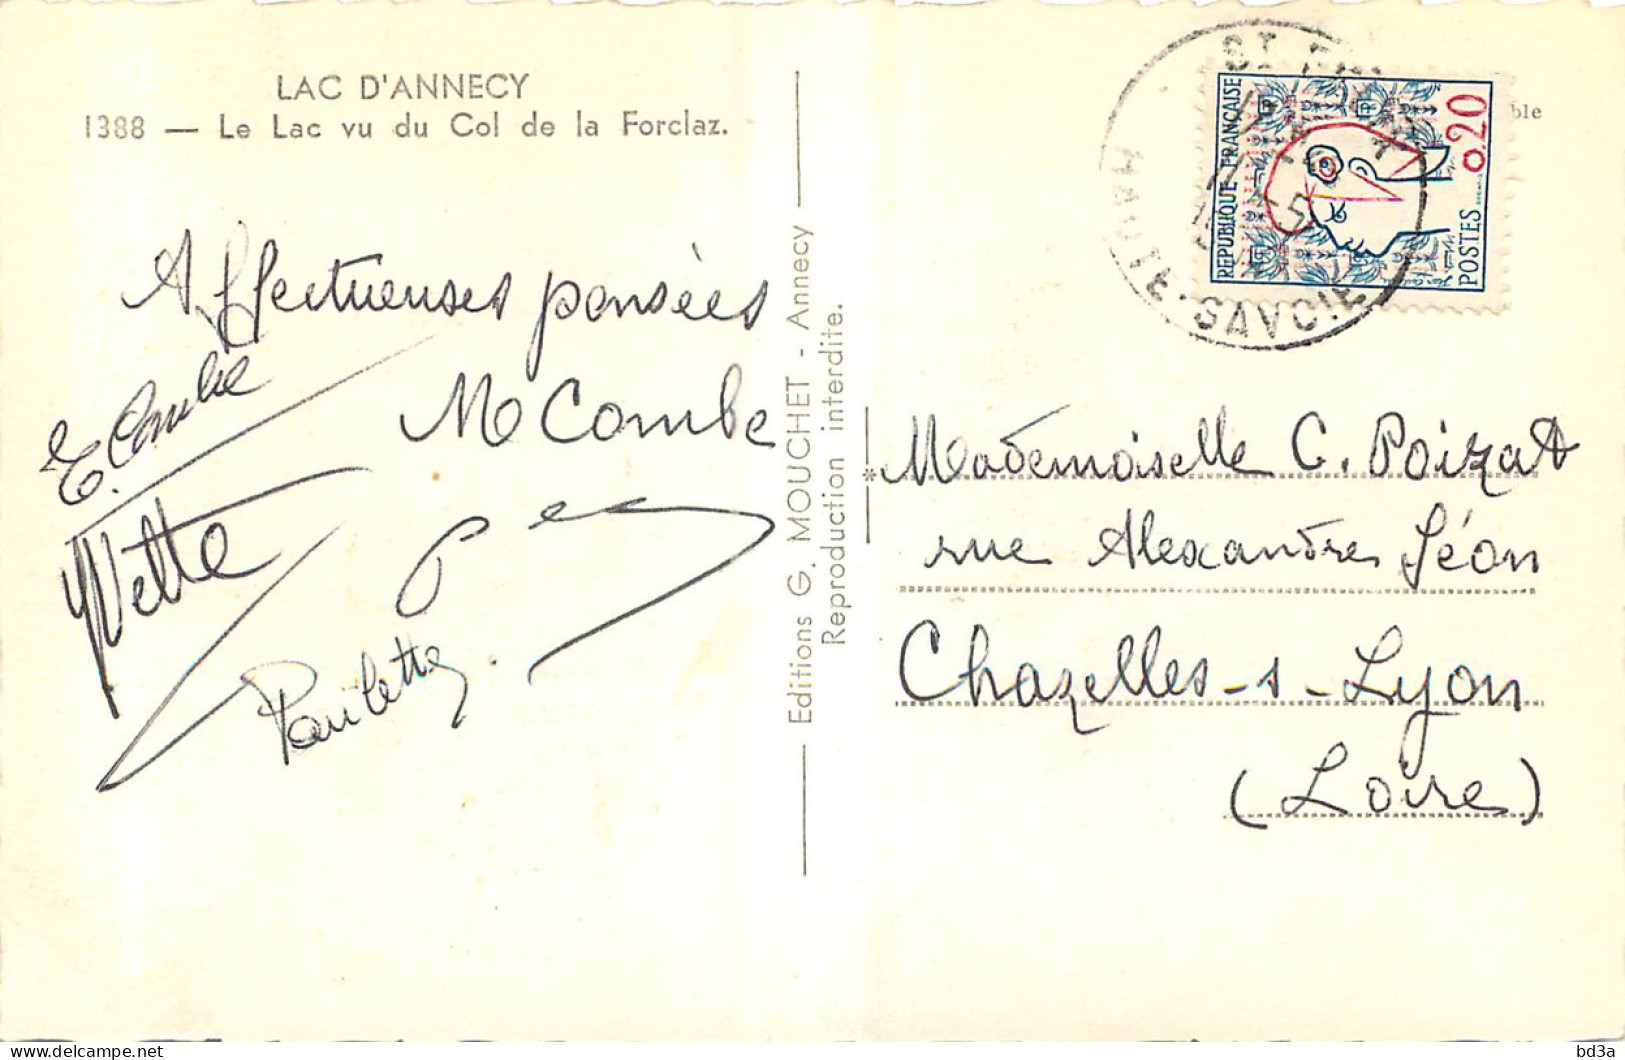 LAC D'ANNECY
1388 — Le Lac vu du Col de la Forclaz.
Affectueuses pensées
M Combe
E. Combe
Yvette
Paulette
Editions G. MOUCHET - Annecy
Reproduction interdite.
REPUBLIQUE FRANÇAISE
0.20
POSTES
ST
HAUTE-SAVOIE
ble
Mademoiselle C. Poizat
rue Alexandre Léon
Chazelles-s-Lyon
(Loire)
bd3a